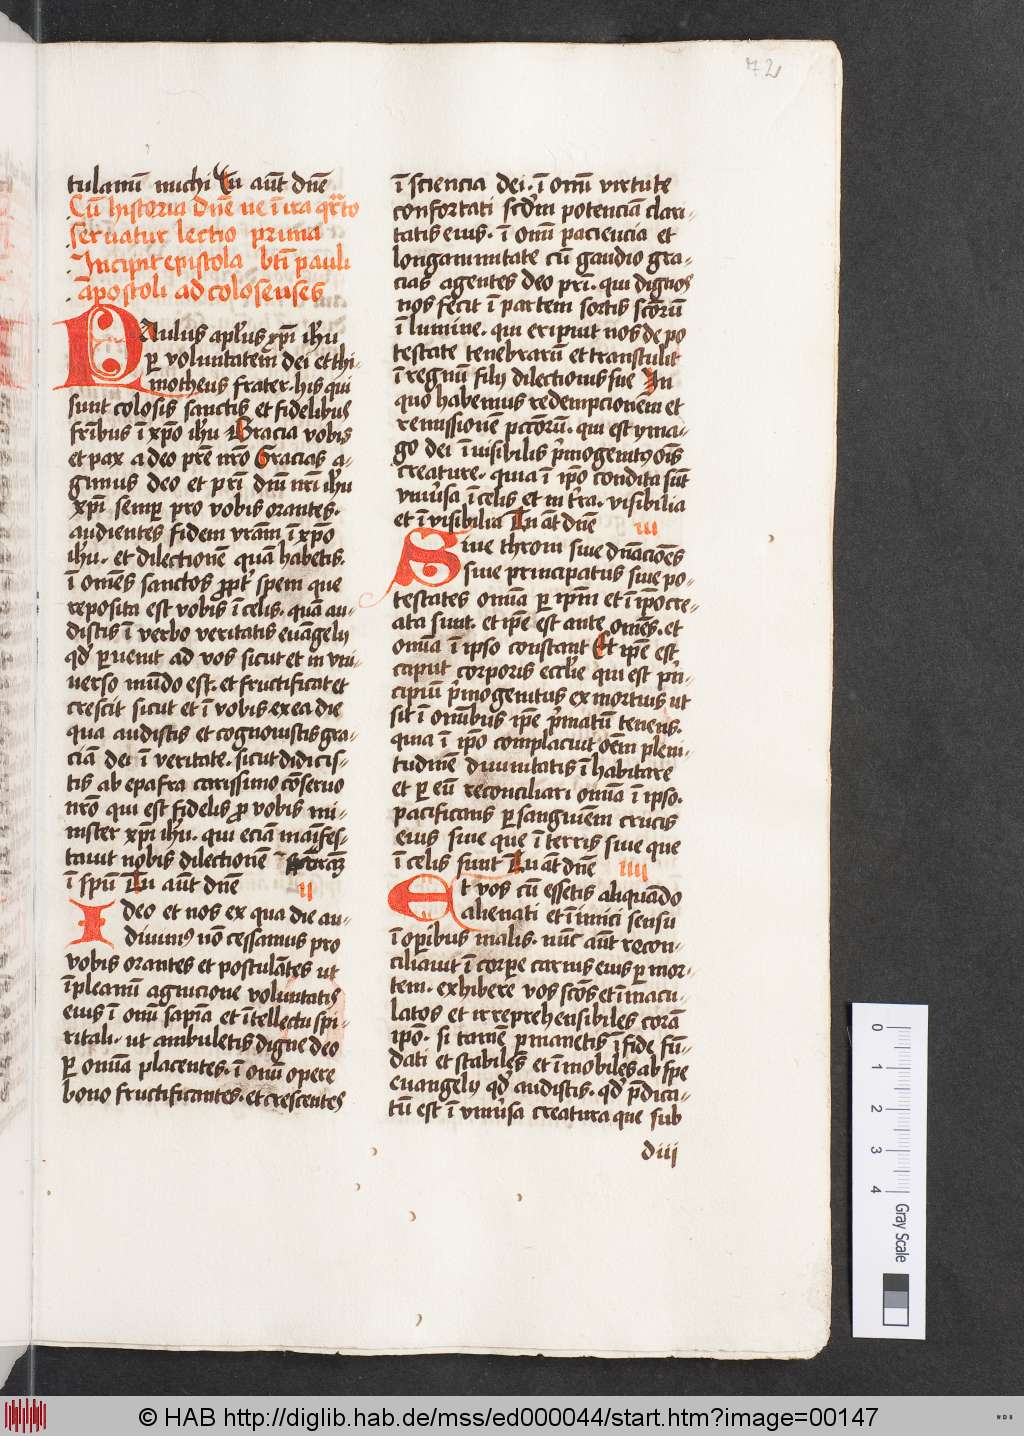 72
tulanū michi Tu aūt dn̄e
Cū historia dn̄e ne ī ira qr̄to
seruatur lectio prima
Incipit epistola bt̄i pauli
apostoli ad colosenses
PAulus apl'us xp̄i ih'u
ꝑ voluntatem dei et thi-
motheus frater. his qui
sunt colosis sanctis et fidelibus
fr̄ibus ī xp̄o ih'u Gracia vobis
et pax a deo pr̄e nr̄o Gracias a-
gimus deo et pr̄i dn̄i nr̄i ih'u
xp̄i semꝑ pro vobis orantes.
audientes fidem vr̄am ī xp̄o
ih'u. et dilectionē quā habetis.
ī om̄es sanctos ꝓpt' spem que
reposita est vobis ī celis. quā au-
distis ī verbo veritatis euāgelij
qd' ꝑuenit ad vos sicut et in vni-
uerso mūdo est. et fructificat et
crescit sicut et ī vobis. ex ea die
qua audistis et cognouistis gra-
ciā dei ī veritate. sicut didicis-
tis ab epafra carissimo cōseruo
nr̄o qui est fidelis ꝓ vobis mi-
nister xp̄i ih'u. qui eciā maīfes-
tauit nobis dilectionē
ī sp̄u Tu aūt dn̄e
ij
Ideo et nos ex qua die au-
diuim9 nō cessamus pro
vobis orantes et postulātes ut
īpleamī agnicione voluntatis
eius ī om̄i sapīa et ītellectu spi-
ritali. ut ambuletis digne deo
ꝑ om̄ia placentes. ī om̄i opere
bono fructificantes. et crescentes
ī sciencia dei. ī om̄i virtute
confortati scd'm potenciā clari-
tatis eius. ī om̄i paciencia et
longanimitate cū gaudio gra-
cias agentes deo pr̄i. qui dignos
nos fecit ī partem sortis sc̄orū
ī lumine. qui eripuit nos de po
testate tenebrarū et transtulit
ī regnū filij dilectionis sue In
quo habemus redempcionem et
remissionē pcc̄orū. qui est yma-
go dei īuisibilis p'mogenit9 ois
creature. quia ī ip̄o condita sūt
vniu'sa ī celis et in t'ra. visibilia
et ī visibilia Tu aūt dn̄e
iij
Siue throni siue dn̄aciōes
siue principatus siue po-
testates om̄ia ꝑ ip̄m et ī ip̄o cre-
ata sunt. et ip̄e est ante om̄es. et
om̄ia ī ipso constant Et ip̄e est
caput corporis eccl'ie qui est p'n-
cipiū p'mogenitus ex mortuis ut
sit ī om̄ibus ip̄e p'matū tenens.
quia ī ip̄o complacuit oēm pleni-
tudinē diuinitatis īhabitare
et ꝑ eū reconciliari om̄ia ī ipso.
pacificans ꝑ sanguinem crucis
eius siue que ī terris siue que
ī celis sunt Tu aūt dn̄e
iiij
Et vos cū essetis aliquādo
alienati et īimici sensu
ī opibus malis. nūc aūt recon-
ciliauit ī corpe carnis eius ꝑ mor-
tem. exhibere vos sc̄os et īmacu-
latos et irreprehensibiles corā
ip̄o. si tamē ꝑmanetis ī fide fū-
dati et stabiles et īmobiles ab spe
euangelij qd' audistis. qd' p̄dica-
tū est ī vniu'sa creatura que sub
diiij
0 1 2 3 4 Gray Scale
© HAB http://diglib.hab.de/mss/ed000044/start.htm?image=00147